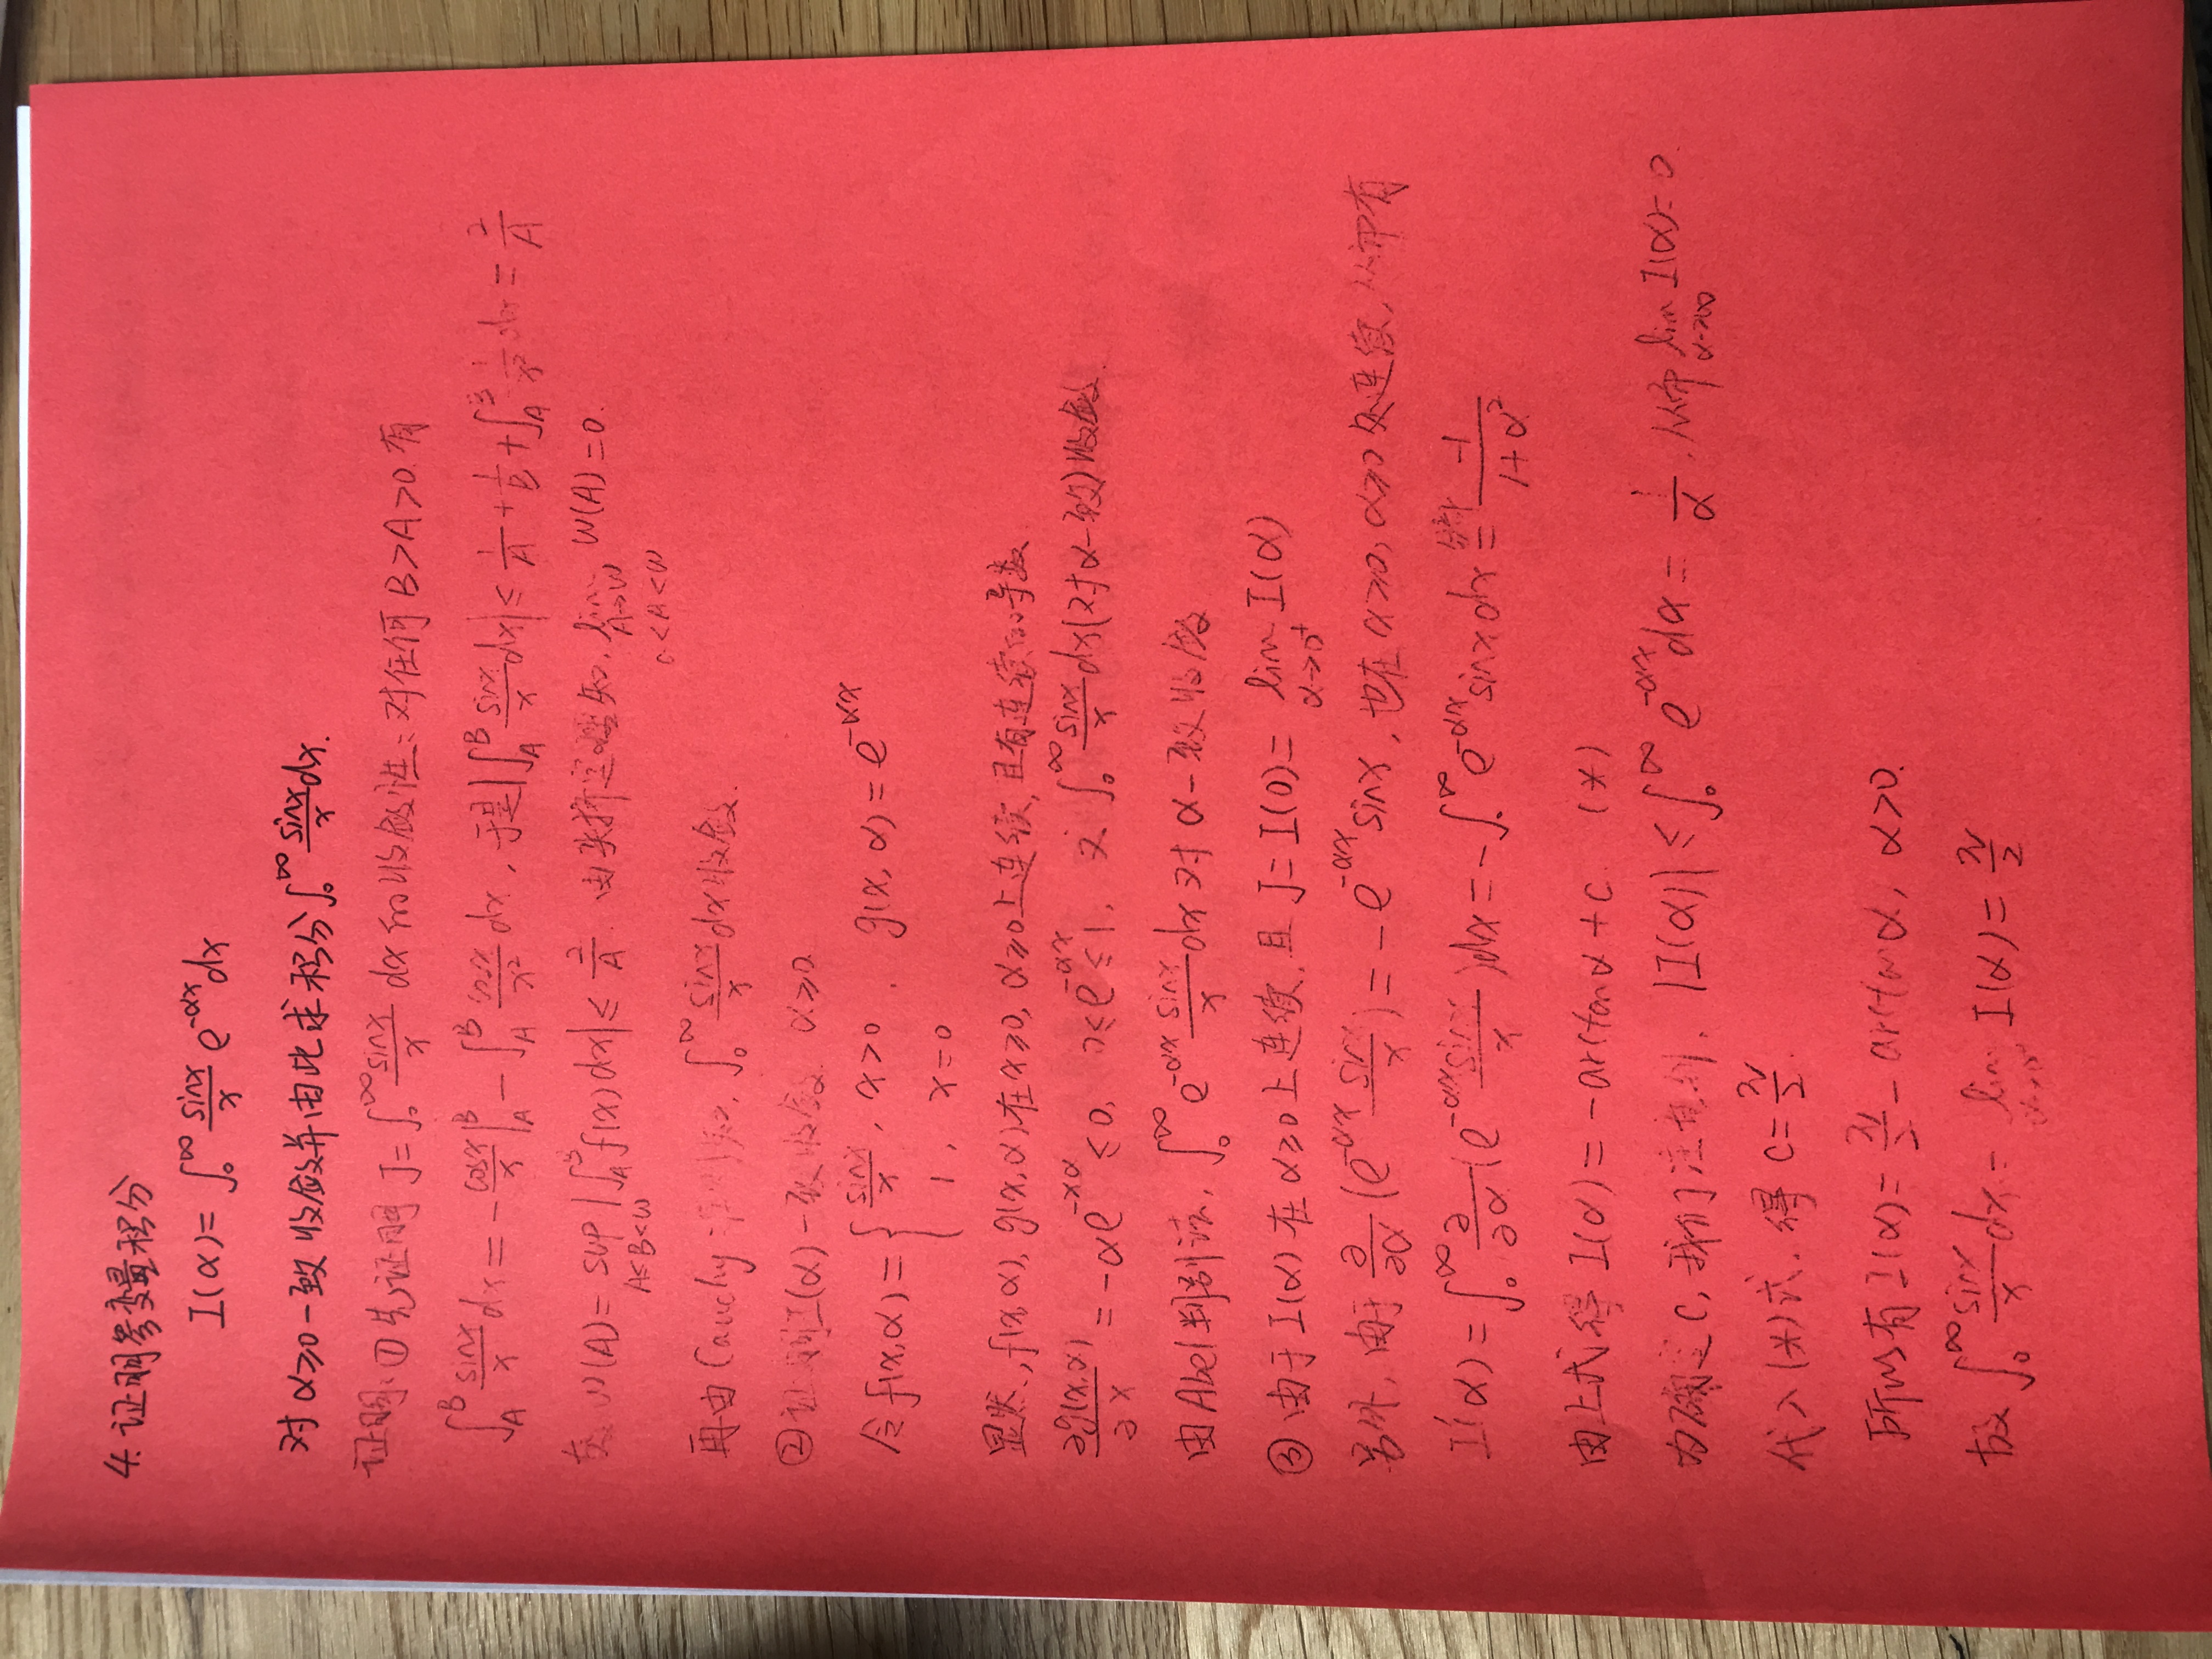 4. 证明参变量积分
I(α)=∫₀^∞ (sinx/x) e^{-αx}dx
对α≥0一致收敛并由此求积分∫₀^∞ (sinx/x)dx.
证明:①先证明 J=∫₀^∞ (sinx/x) dx 的收敛性:对任何B>A>0.有
∫_A^B (sinx/x)dx=-(cosx/x)|_A^B-∫_A^B (cosx/x²)dx, 于是|∫_A^B (sinx/x)dx|≤1/A+1/B+∫_A^B (1/x²)dx=2/A
W(A)=sup_{A<B<w}|∫_A^B f(x)dx|≤2/A. 由夹挤定理知, lim_{A→w, 0<A<w} W(A)=0.
再由Cauchy 知, ∫₀^∞ (sinx/x)dx收敛.
②证明I(α)一致收敛. α≥0
令f(x,α)={ sinx/x, x>0 ; 1, x=0 . g(x,α)=e^{-αx}
显然,f(x,α),g(x,α)在x≥0,α≥0上连续,且有连续的导数
∂g(x,α)/∂x=-αe^{-xα}≤0, 0≤e^{-αx}≤1, 又∫₀^∞ (sinx/x)dx(对α一致)收敛
由Abel判别法, ∫₀^∞ e^{-αx} (sinx/x)dx对α一致收敛
③由于I(α)在α≥0上连续,且J=I(0)=lim_{α→0⁺} I(α)
另外,由于 ∂/∂α(e^{-αx} sinx/x)=-e^{-αx}sinx, 也在x≥0,α≥0处连续,从而有
I'(α)=∫₀^∞ ∂/∂α(e^{-αx} sinx/x)dx=-∫₀^∞ e^{-αx}sinxdx = -1/(1+α²)
由上式得I(α)=-arctanα+C (*)
为确定C,我们注意到, |I(α)|≤∫₀^∞ e^{-αx}dx=1/α,从而lim_{α→∞} I(α)=0.
代入(*)式,得C=π/2.
所以有I(α)=π/2-arctanα, α>0.
故∫₀^∞ (sinx/x)dx=lim I(α)=π/2